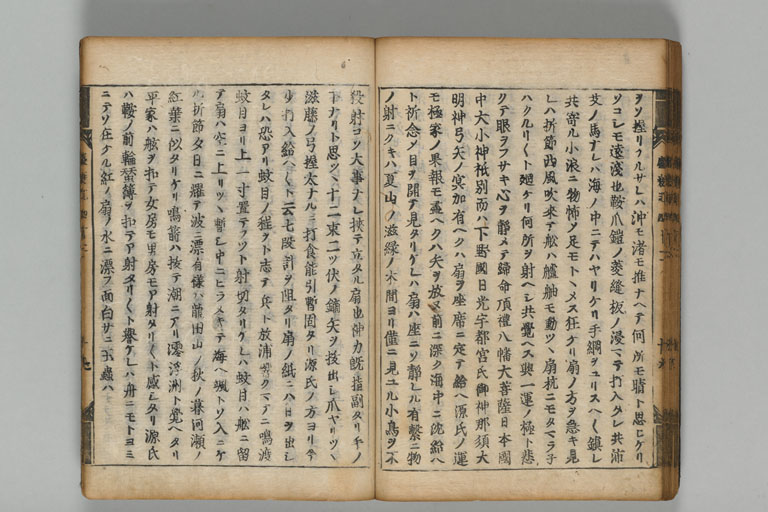 ヲソ握リクルサレハ沖モ渚モ推ナヘテ何所モ晴ト思ヒケリ
ソコレモ遠淺也鞍爪鎧ノ菱縫板ノ浸マテ打入タレ共沛
艾ノ馬ナレハ海ノ中ニテハヤリケリ手綱ヲユリスヘ〱鎮レ
共寄ル小浪ニ物怖ノ足モトヽメス狂ケリ扇ノ方ヲ急キ見
レハ折節西風吹来テ舩ハ艫舳モ動ツヽ扇杭ニモタマラ子
ハクルリ〱ト廻ケリ何所ヲ射ヘシ共覺ヘス與一運ノ極ト悲
クテ眼ヲフサキ心ヲ静メテ歸命頂禮八幡大菩薩日本國
中大小神祇別而ハ下野國日光宇都宮氏御神那須大
明神弓矢ノ冥加有ヘクハ扇ヲ座席ニ定テ給ヘ源氏ノ運
モ極家ノ果報モ盡ヘクハ矢ヲ放ヌ前ニ深ク海中ニ沈給ヘ
ト祈念メ目ヲ開テ見タリケレハ扇ハ座ニソ靜レル有繫ニ物
ノ射ニクキハ夏山ノ滋緑ノ木間ヨリ僅ニ見ユル小鳥ヲ不
殺射コソ大事ナレ挟テ立タル扇也神力既指副タリ手ノ
下ナリト思ツヽ十二束二ツ伏ノ鏑矢ヲ抜出シ爪ヤリツヽ
滋藤ノ弓握太ナルニ打食能引暫固タリ源氏ノ方ヨリ今
少打入給ヘ〱ト云七段計ヲ阻タリ扇ノ紙ニハ日ヲ出シ
タレハ恐アリ蚊目ノ程ヲト志テ兵ト放浦響クマテニ鳴渡
蚊目ヨリ上一寸置テフツト射切タリケレハ蚊目ハ舩ニ留
テ扇ハ空ニ上リツヽ暫シ中ニヒラメキテ海ヘ颯トソ入ニケ
ル折節夕日ニ耀テ波ニ漂有様ハ龍田山ノ秋ノ暮河瀬ノ
紅葉ニ似タリケリ鳴箭ハ抜テ潮ニアリ澪浮洲ト覺ヘタリ
平家ハ舷ヲ扣テ女房モ男房モア射タリ〱ト感シタリ源氏
ハ鞍ノ前輪箙ヲ扣テア射タリ〱ト譽ケレハ舟ニモトヨミ
ニテソ在ケル紅ノ扇ノ水ニ漂フ面白サニ玉蟲ハ